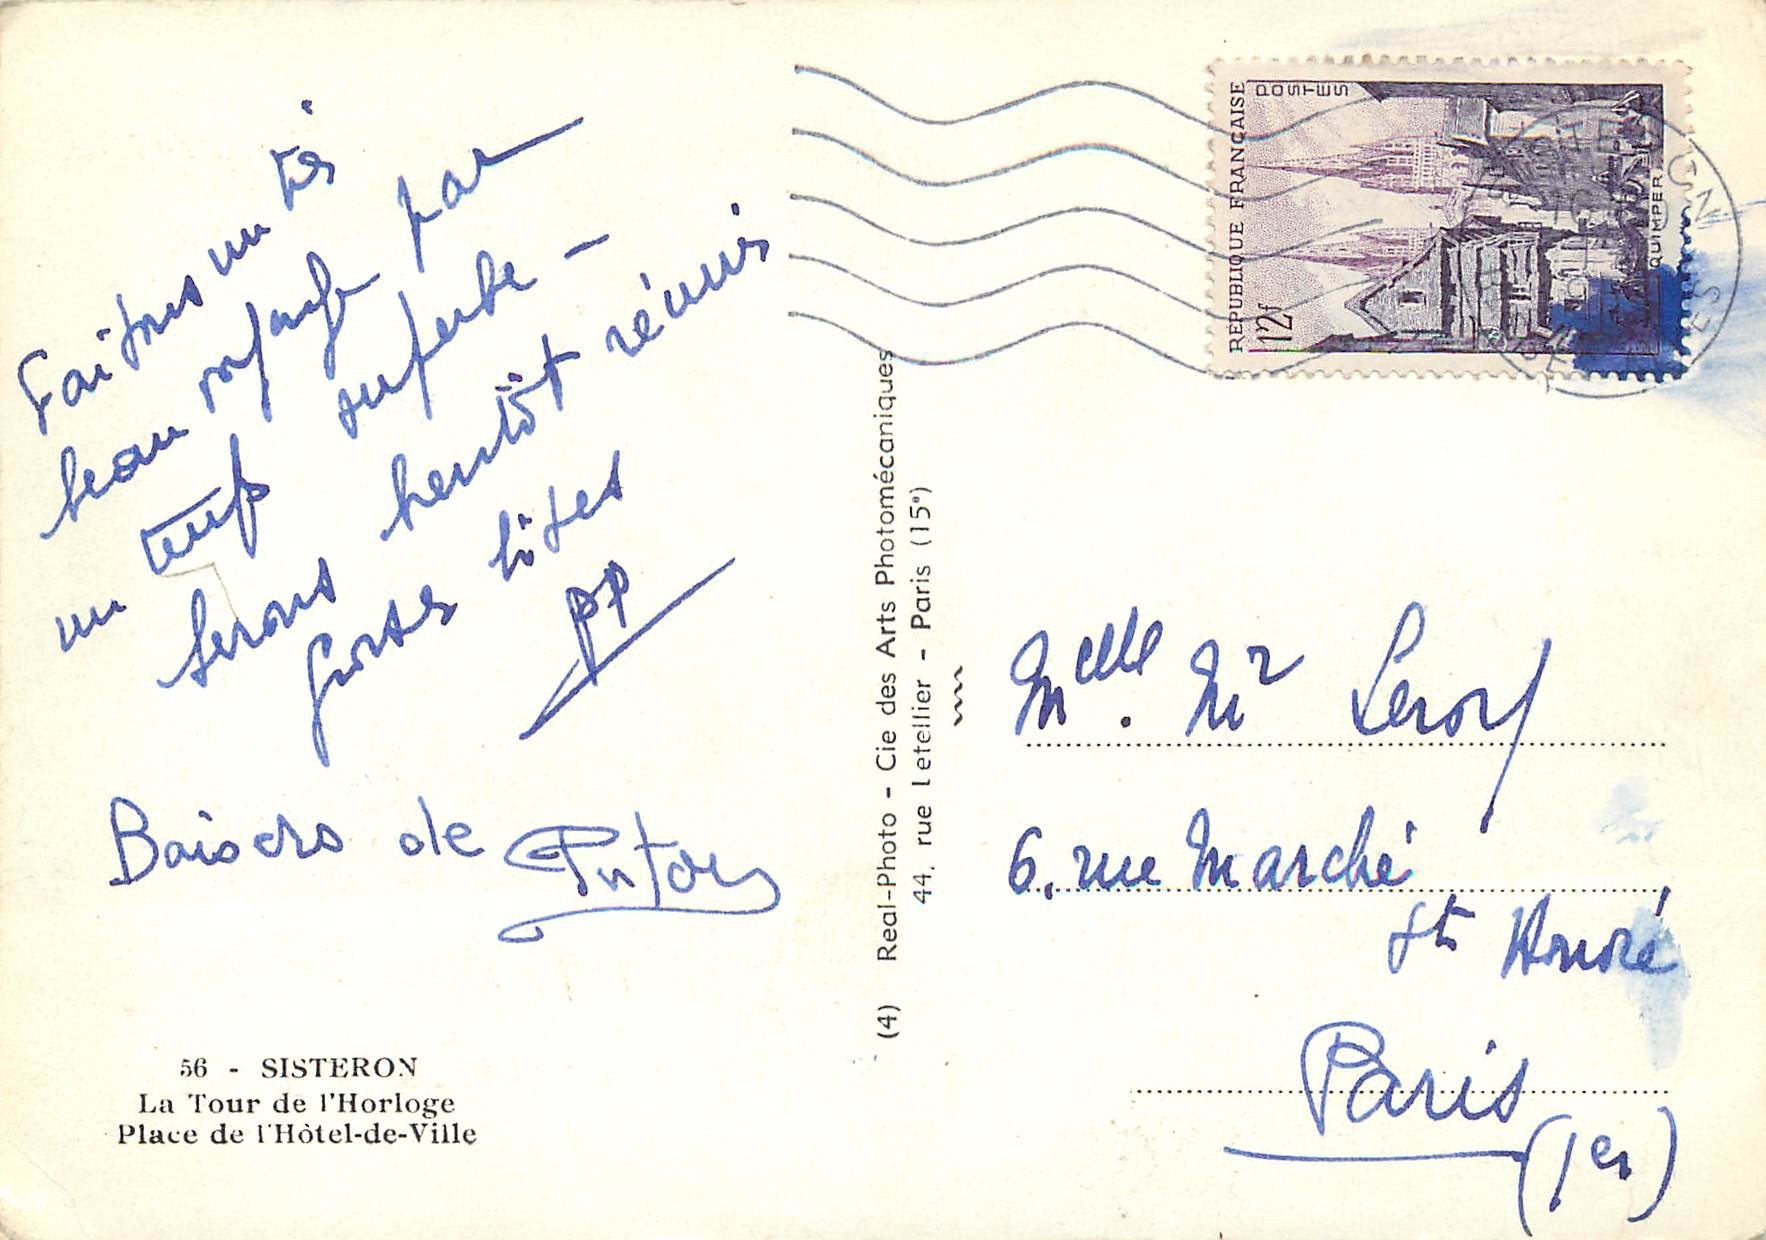 Faisons un très
beau voyage par
un temps superbe -
serons bientôt réunis
grosses bises
PP
Baisers de
56 - SISTERON
La Tour de l'Horloge
Place de l'Hôtel-de-Ville
(4) Real-Photo - Cie des Arts Photomécaniques
44, rue Letellier - Paris (15e)
REPUBLIQUE FRANÇAISE
POSTES
12f
QUIMPER
Melle. Mr Leroy
6, rue Marché
St Honoré
Paris
(1er)